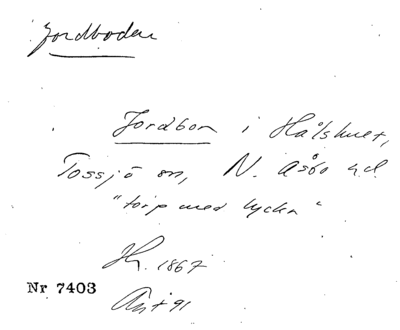 Jordboden
Jordbon i Hålshult,
Tossjö sn, N. Åsbo hd.
"torp med lycka"
H. 1867
Nr 7403